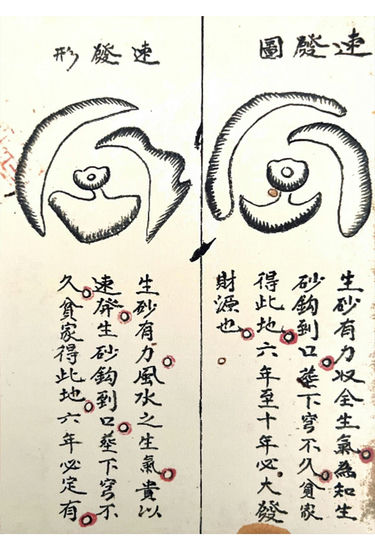 速發圖
生砂有力收全生氣為知生
砂鈎到口葬下穹不久貧家
得此地六年至十年必大發
財源也
速發形
生砂有力風水之生氣貴以
速發生砂鈎到口葬下穹不
久貧家得此地六年必定有